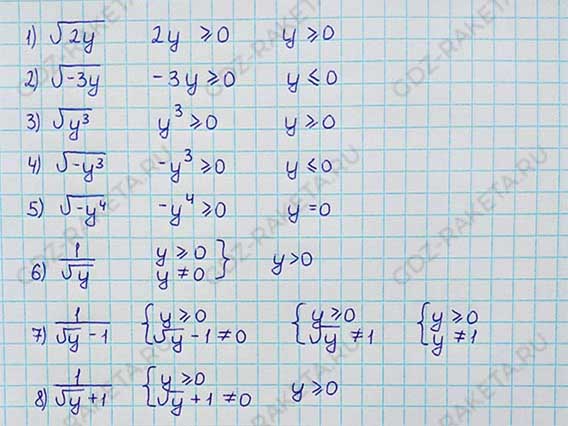 1) √2y 2y ⩾ 0 y ⩾ 0
2) √-3y -3y ⩾ 0 y ⩽ 0
3) √y³ y³ ⩾ 0 y ⩾ 0
4) √-y³ -y³ ⩾ 0 y ⩽ 0
5) √-y⁴ -y⁴ ⩾ 0 y = 0
6) 1/√y y ⩾ 0 y ≠ 0 } y > 0
7) 1/(√y - 1) { y ⩾ 0 √y - 1 ≠ 0 { y ⩾ 0 √y ≠ 1 { y ⩾ 0 y ≠ 1
8) 1/(√y + 1) { y ⩾ 0 √y + 1 ≠ 0 y ⩾ 0
GDZ-RAKETA.RU